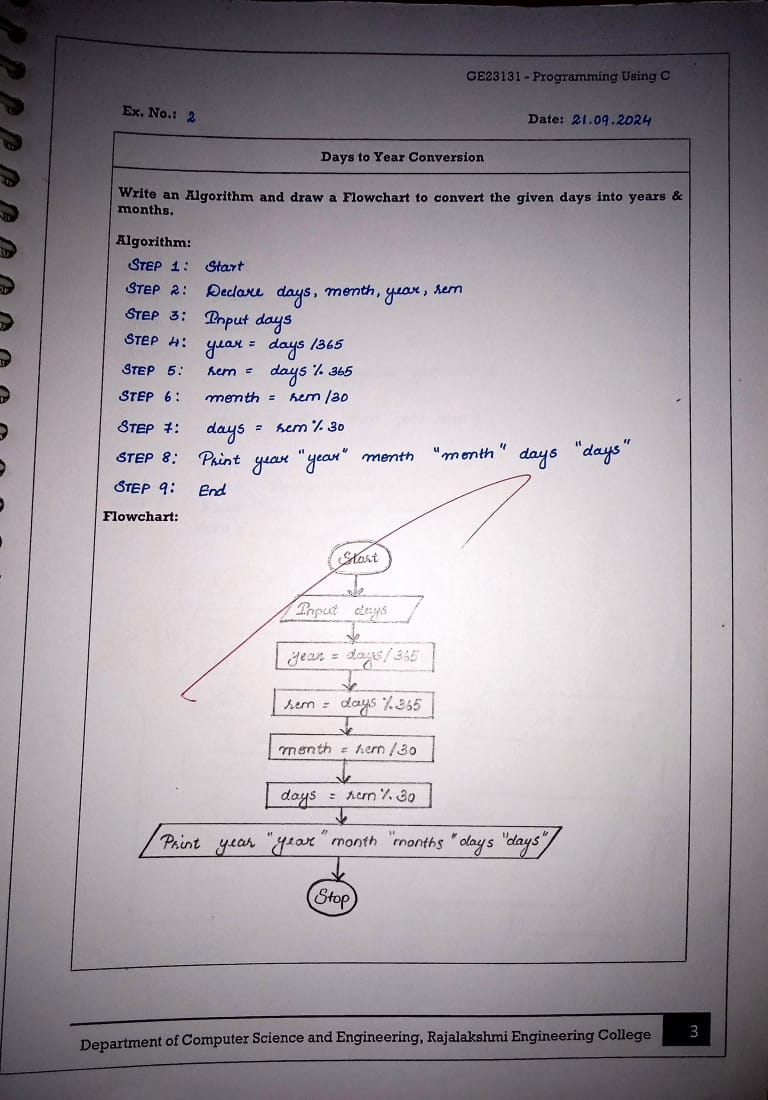 GE23131 - Programming Using C
Ex. No.: 2
Date: 21.09.2024
Days to Year Conversion
Write an Algorithm and draw a Flowchart to convert the given days into years &
months.
Algorithm:
STEP 1: Start
STEP 2: Declare days, month, year, rem
STEP 3: Input days
STEP 4: year = days /365
STEP 5: rem = days % 365
STEP 6: month = rem /30
STEP 7: days = rem % 30
STEP 8: Print year "year" month "month" days "days"
STEP 9: End
Flowchart:
Start
Input days
year = days/365
rem = days %365
month = rem /30
days = rem % 30
Print year "year" month "months" days "days"
Stop
Department of Computer Science and Engineering, Rajalakshmi Engineering College 3